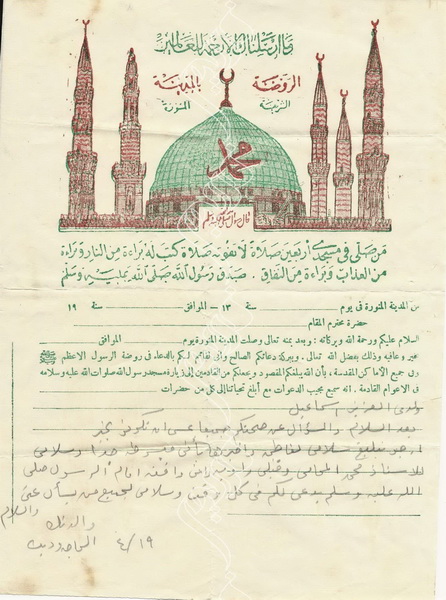 وما أرسلناك إلا رحمة للعالمين
الروضة بالمدينة
الشريفة المنورة
محمد
قال رسول الله صلى الله عليه وسلم
من صلى في مسجدي أربعين صلاة لا تفوته صلاة كتب له براءة من النار وبراءة
من العذاب وبراءة من النفاق . صدق رسول الله صلى الله عليه وسلم
من المدينة المنورة في يوم سنة ١٣ الموافق سنة ١٩
حضرة محترم المقام
السلام عليكم ورحمة الله وبركاته : وبعد بمنه تعالى وصلت المدينة المنورة يوم الموافق
بخير وعافية وذلك بفضل الله تعالى وببركة دعائكم الصالح واني لكم بالدعاء في روضة الرسول الاعظم ﷺ
وفي جميع الأماكن المقدسة ، بأن الله يبلغكم المقصود ويجعلكم من القادمين إلى زيارة مسجد رسول الله صلوات الله عليه وسلامه
في الاعوام القادمة . انه سميع مجيب الدعوات مع أبلغ تحياتنا إلى كل من حضرات
ولدي العزيز اسماعيل
بعد السلام والسؤال عن صحتكم جميعا عسى ان تكونوا بخير
ارجو تبليغ سلامي جدا وسلامي
للاستاذ المحامي امام الرسول صلى
الله عليه وسلم لكم في كل وقت وسلامي لجميع من يسأل عني
والسلام
والدتك
٤/١٩